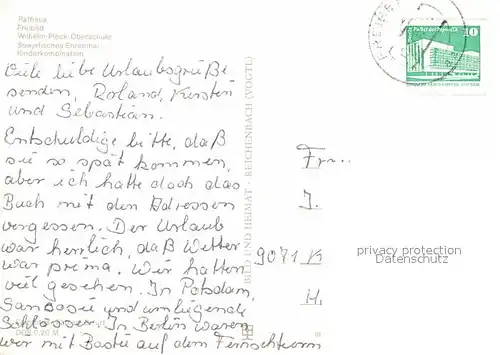 Rathaus
Freibad
Wilhelm-Pieck-Oberschule
Sowjetisches Ehrenmal
Kinderkombination
Viele liebe Urlaubsgrüße
senden, Roland, Kerstin
und Sebastian.
Entschuldige bitte, daß
sie so spät kommen,
aber ich hatte doch das
Buch mit den Adressen
vergessen. Der Urlaub
war herrlich, daß Wetter
war prima. Wir hatten
viel gesehen. In Potsdam,
Sansosie und umliegende
Schlösser. In Berlin waren
wir mit Basti auf dem Fernsehturm
BILD UND HEIMAT · REICHENBACH (VOGTL)
10
Palast der Republik
Fr...
J.
9071 K
H.
privacy protection
Datenschutz